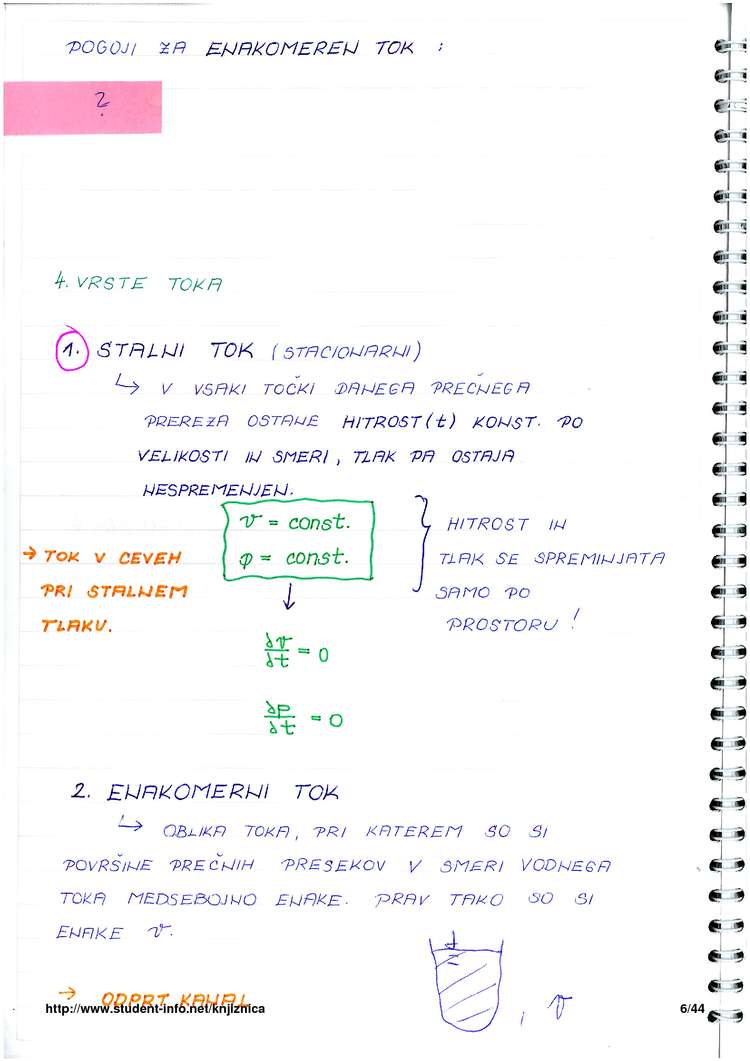 POGOJI ZA ENAKOMEREN TOK :
?
4. VRSTE TOKA
1. STALNI TOK (STACIONARNI)
↳ V VSAKI TOČKI DANEGA PREČNEGA
PREREZA OSTANE HITROST(t) KONST. PO
VELIKOSTI IN SMERI, TLAK PA OSTAJA
NESPREMENJEN.
v = const.
p = const.
} HITROST IN
TLAK SE SPREMINJATA
SAMO PO
PROSTORU !
→ TOK V CEVEH
PRI STALNEM
TLAKU.
∂v/∂t = 0
∂p/∂t = 0
2. ENAKOMERNI TOK
↳ OBLIKA TOKA, PRI KATEREM SO SI
POVRŠINE PREČNIH PRESEKOV V SMERI VODNEGA
TOKA MEDSEBOJNO ENAKE. PRAV TAKO SO SI
ENAKE v.
→ ODPRT KANAL
, v
http://www.student-info.net/knjiznica
6/44